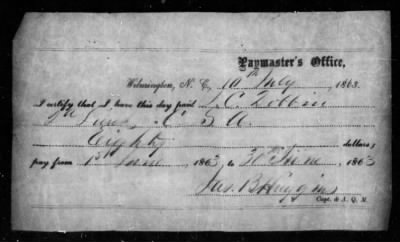 Paymaster's Office,
Wilmington, N. C., 10th July 1863.
I certify that I have this day paid J. C. Dobbin
2nd Lieut C. S. A.
Eighty dollars;
pay from 1st June 1863 to 30th June 1863
Jas. B Huggins
Capt. & A. Q. M.